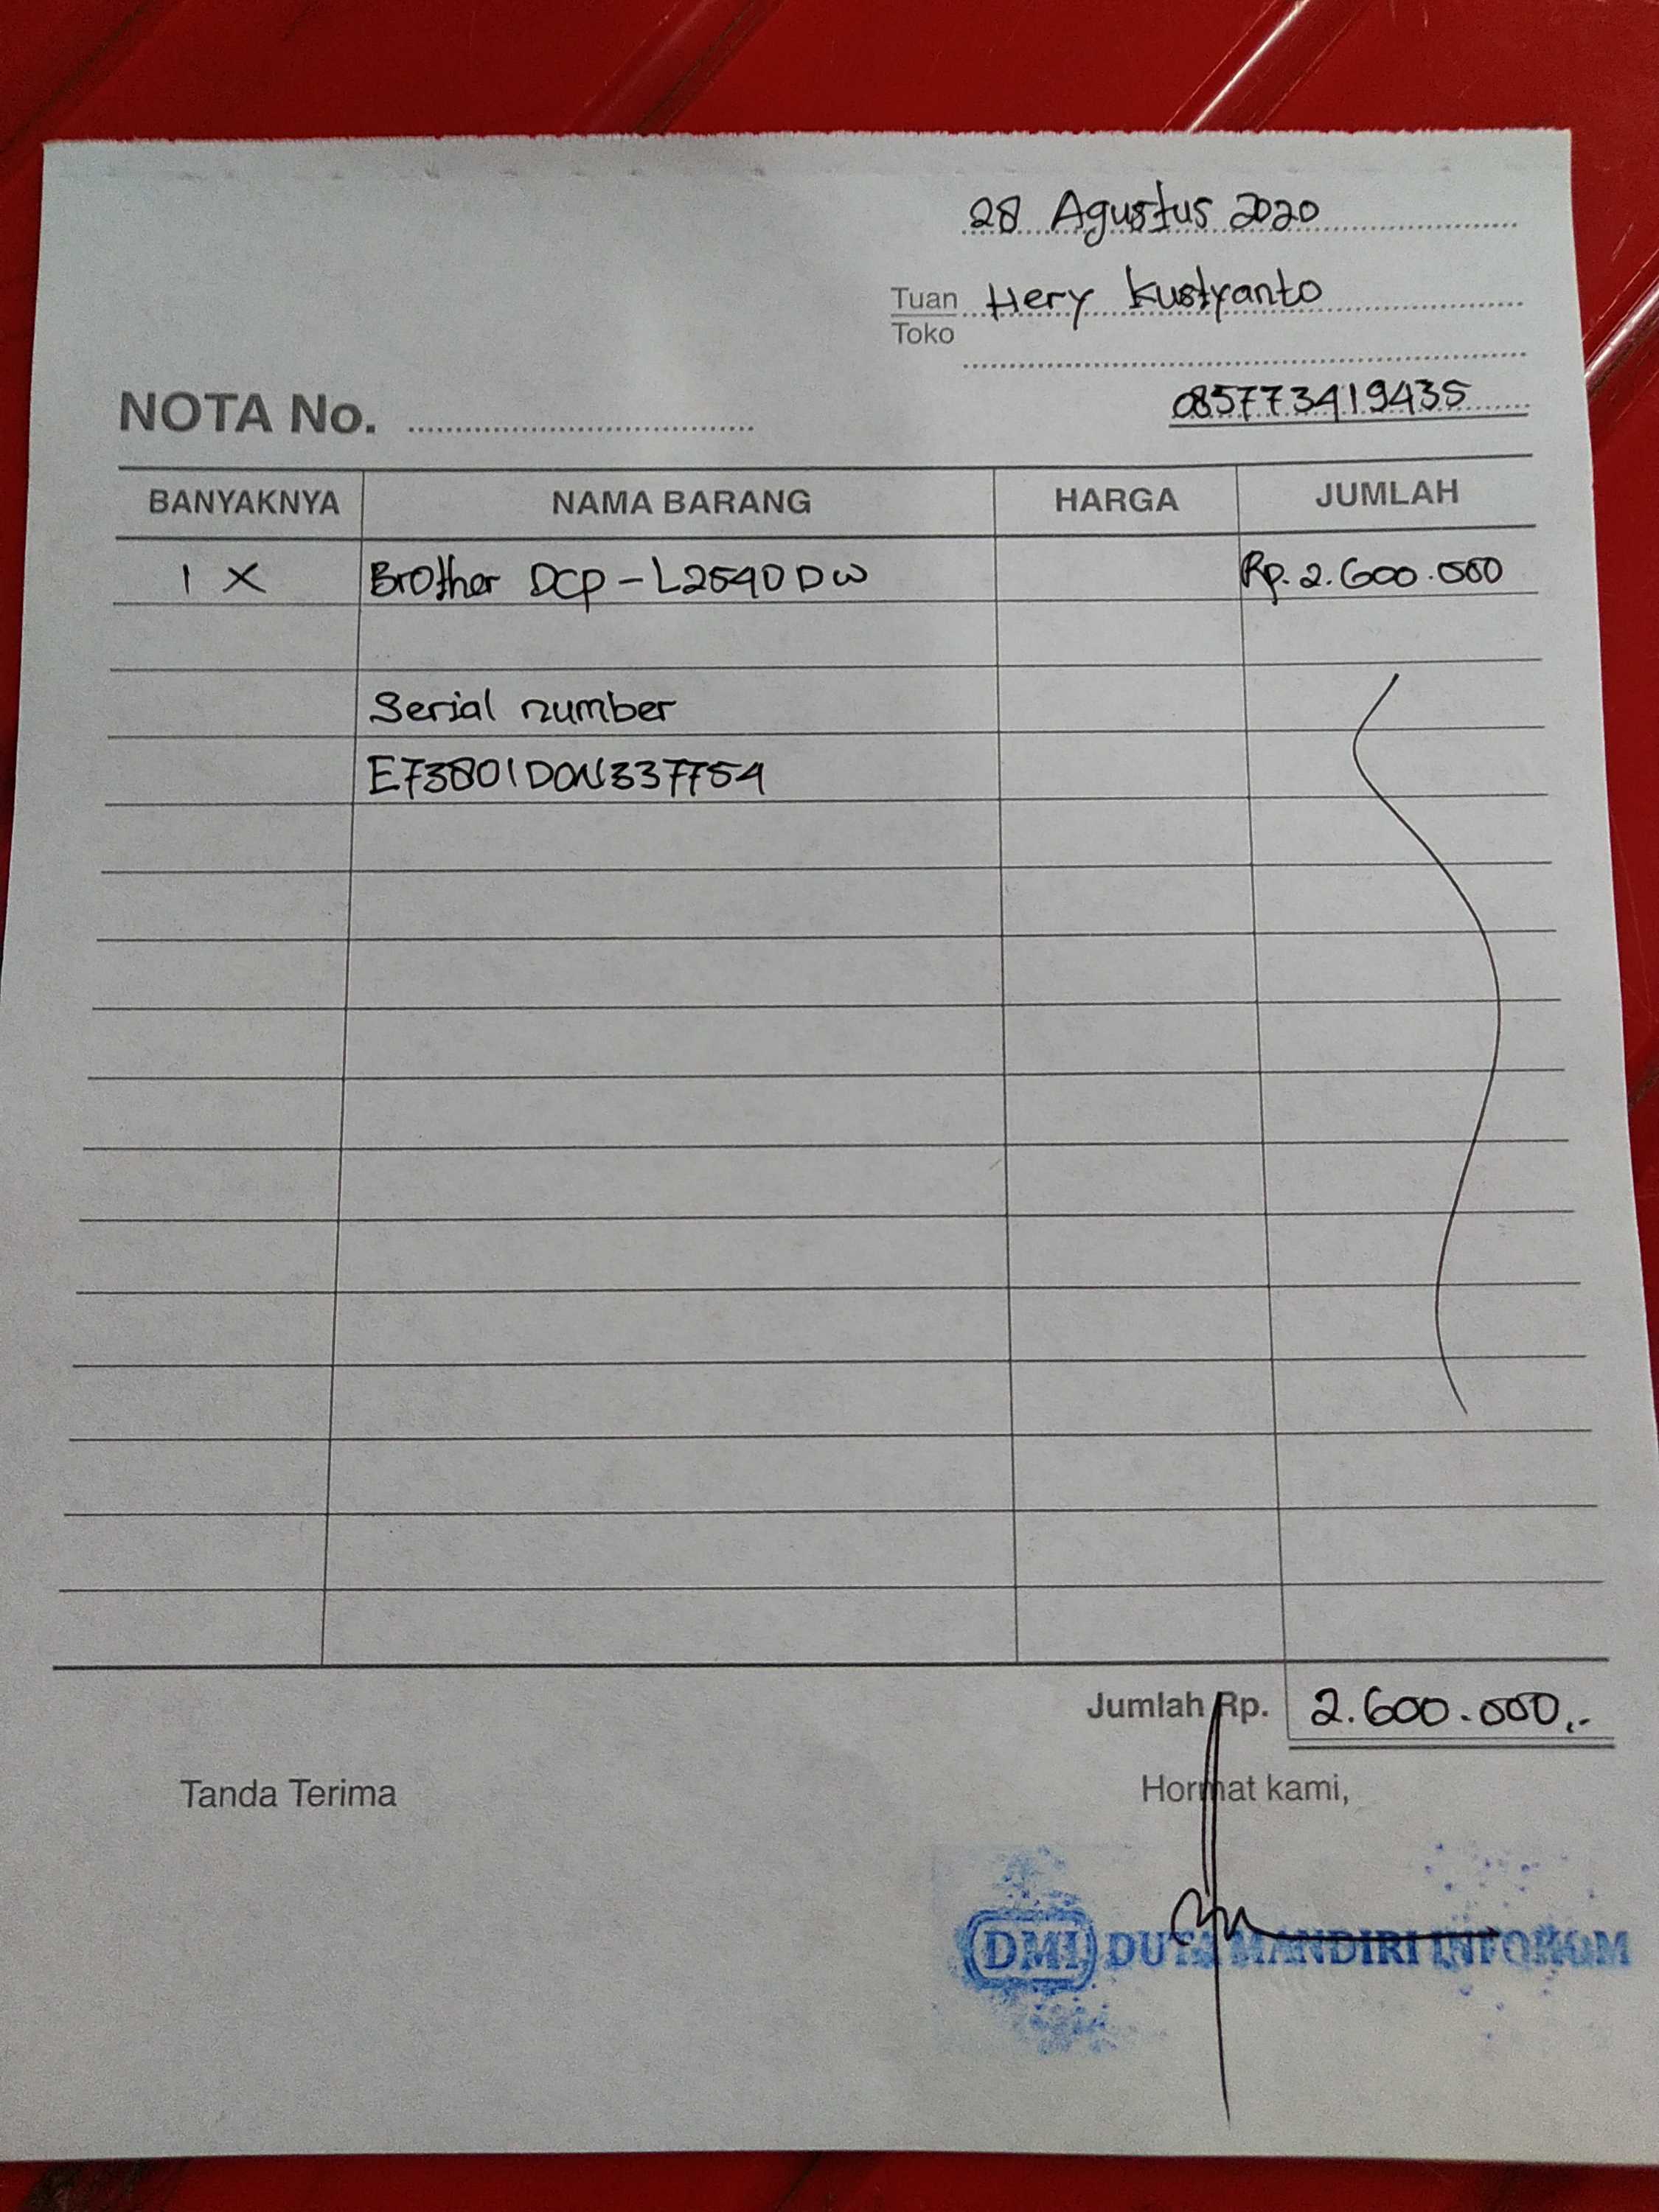 28 Agustus 2020
Tuan Hery Kustyanto
Toko
085773419435
NOTA No.
BANYAKNYA NAMA BARANG HARGA JUMLAH
1 X Brother DCP-L2540DW Rp. 2.600.000
Serial number
E73801D0N337754
Jumlah Rp. 2.600.000,-
Tanda Terima Hormat kami,
DMI DUTA MANDIRI INFOKOM